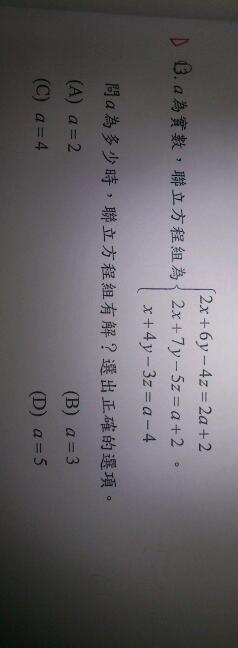 13. a為實數，聯立方程組為
2x+6y-4z=2a+2
2x+7y-5z=a+2 。
x+4y-3z=a-4
問a為多少時，聯立方程組有解？選出正確的選項。
(A) a=2 (B) a=3
(C) a=4 (D) a=5